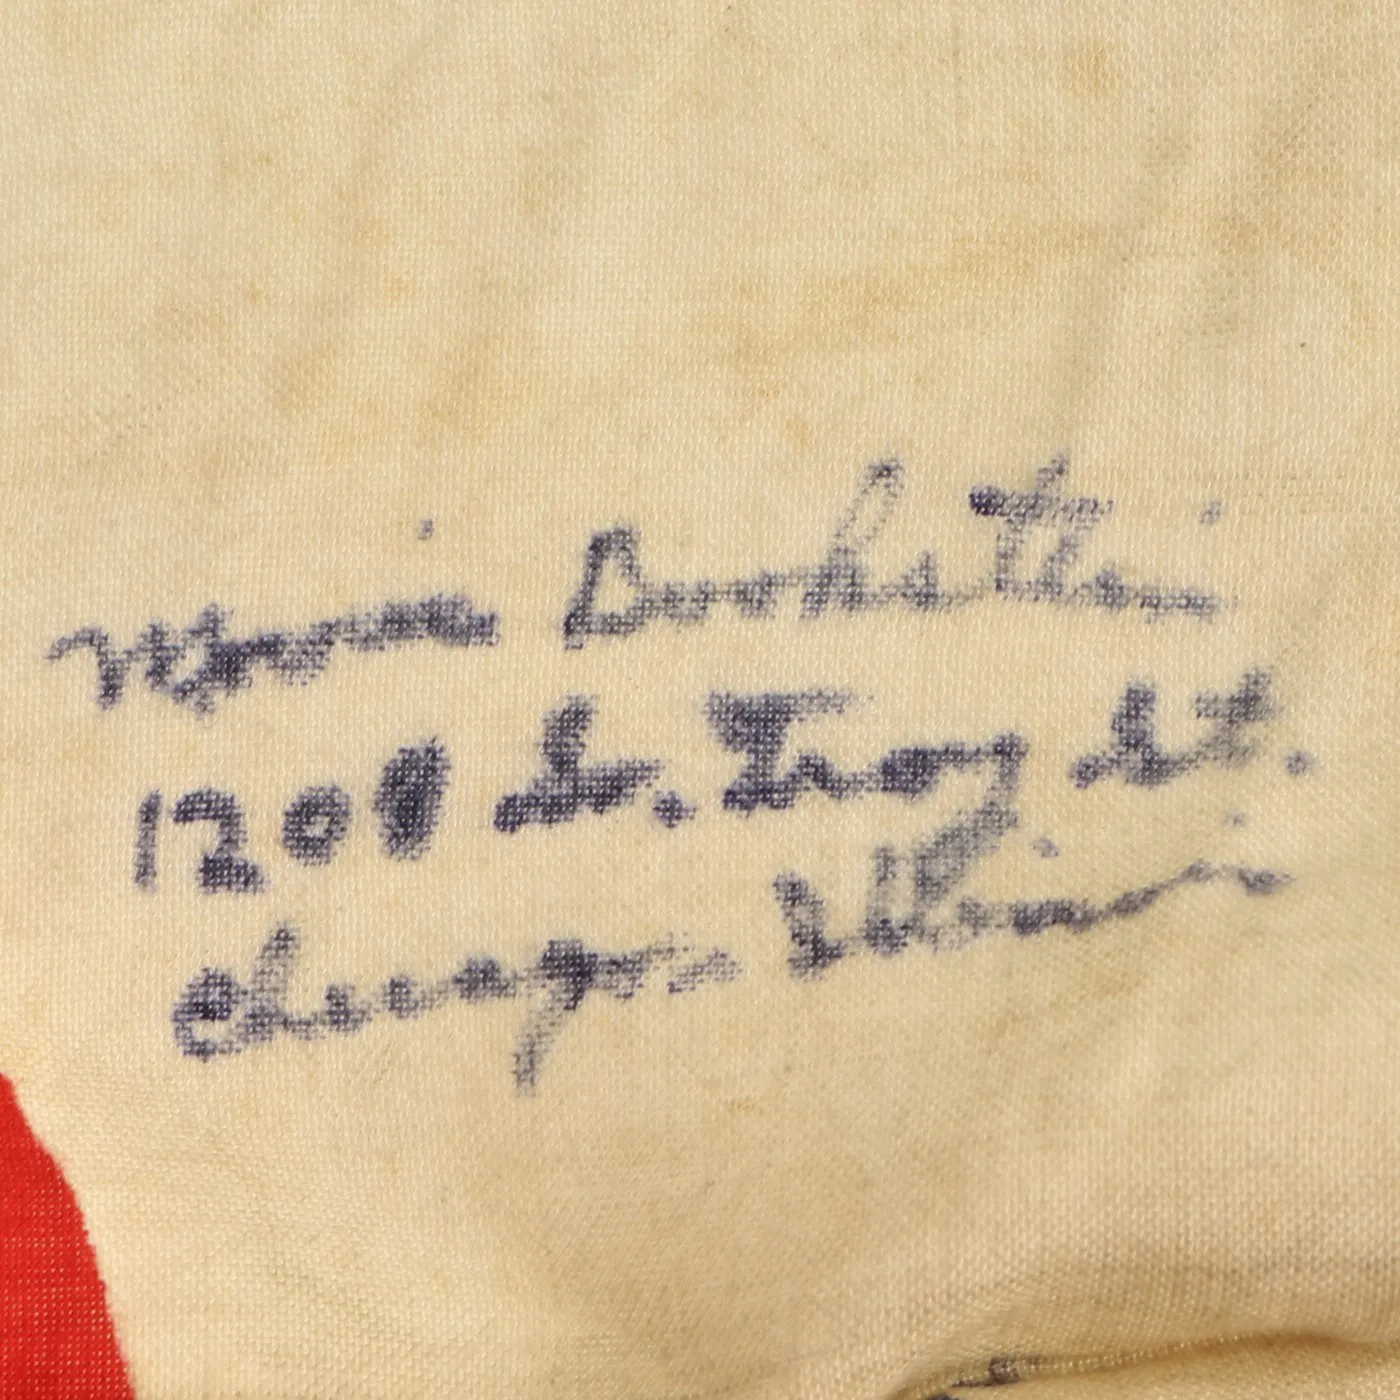 Morris Bookstein
1200 S. Troy St.
Chicago, Illinois